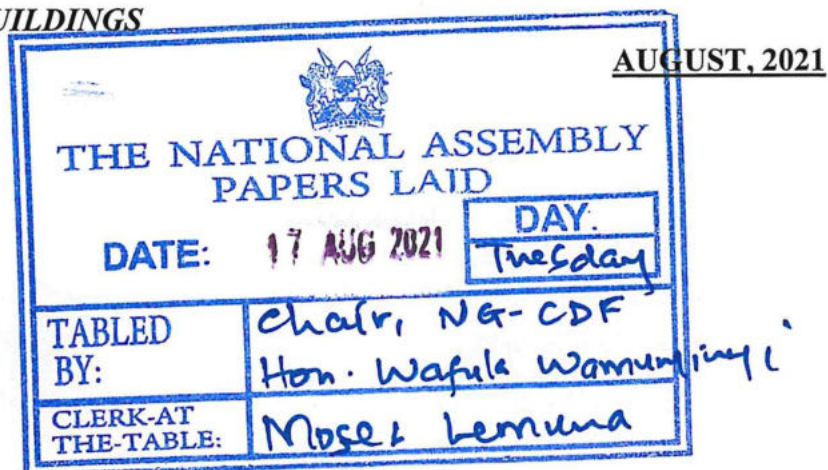 UILDINGS
AUGUST, 2021
THE NATIONAL ASSEMBLY
PAPERS LAID
DATE: 17 AUG 2021
DAY.
Tuesday
TABLED BY:
Chair, NG-CDF
Hon. Wafula Wamunyinyi
CLERK-AT THE-TABLE:
Moses Lemuna